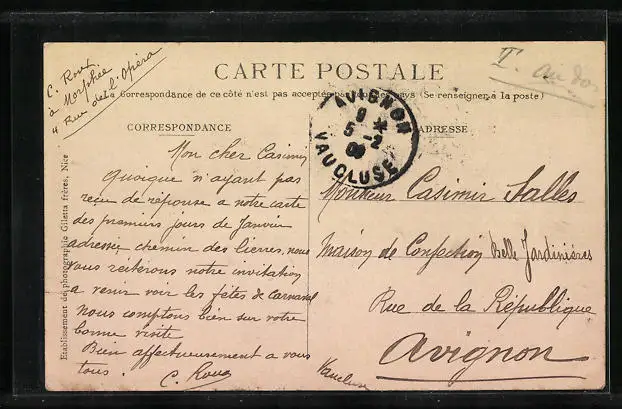 C. Roux
à Morphée
4 Rue de l'Opéra
T. au dos
CARTE POSTALE
La Correspondance de ce côté n'est pas acceptée par tous les pays (Se renseigner à la poste)
AVIGNON
9
5 -2
09
VAUCLUSE
CORRESPONDANCE
Mon cher Casimir
Quoique n'ayant pas
reçu de réponse a notre carte
des premiers jours de Janvier
adressée chemin des lierres, nous
vous reiterons notre invitation
a venir voir les fêtes de Carnaval
nous comptons bien sur votre
bonne visite
Bien affectueusement a vous
tous. C. Roux
ADRESSE
Monsieur Casimir Salles
Maison de Confection Belle Jardinières
Rue de la République
Avignon
Vaucluse
Etablissement de photographie Giletta frères, Nice